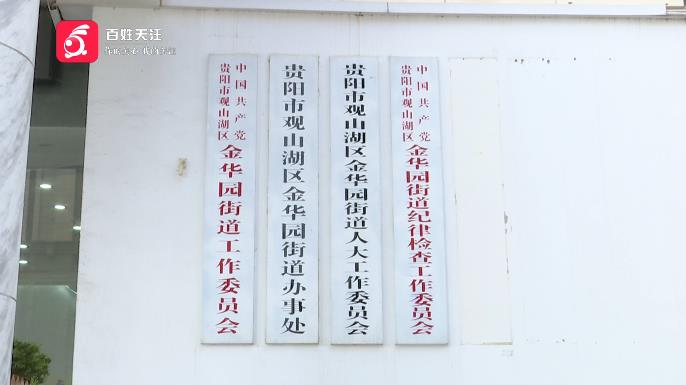 百姓关注
你的关心 我的关注
中国共产党
贵阳市观山湖区
金华园街道工作委员会
贵阳市观山湖区金华园街道办事处
贵阳市观山湖区金华园街道人大工作委员会
中国共产党
贵阳市观山湖区
金华园街道纪律检查工作委员会